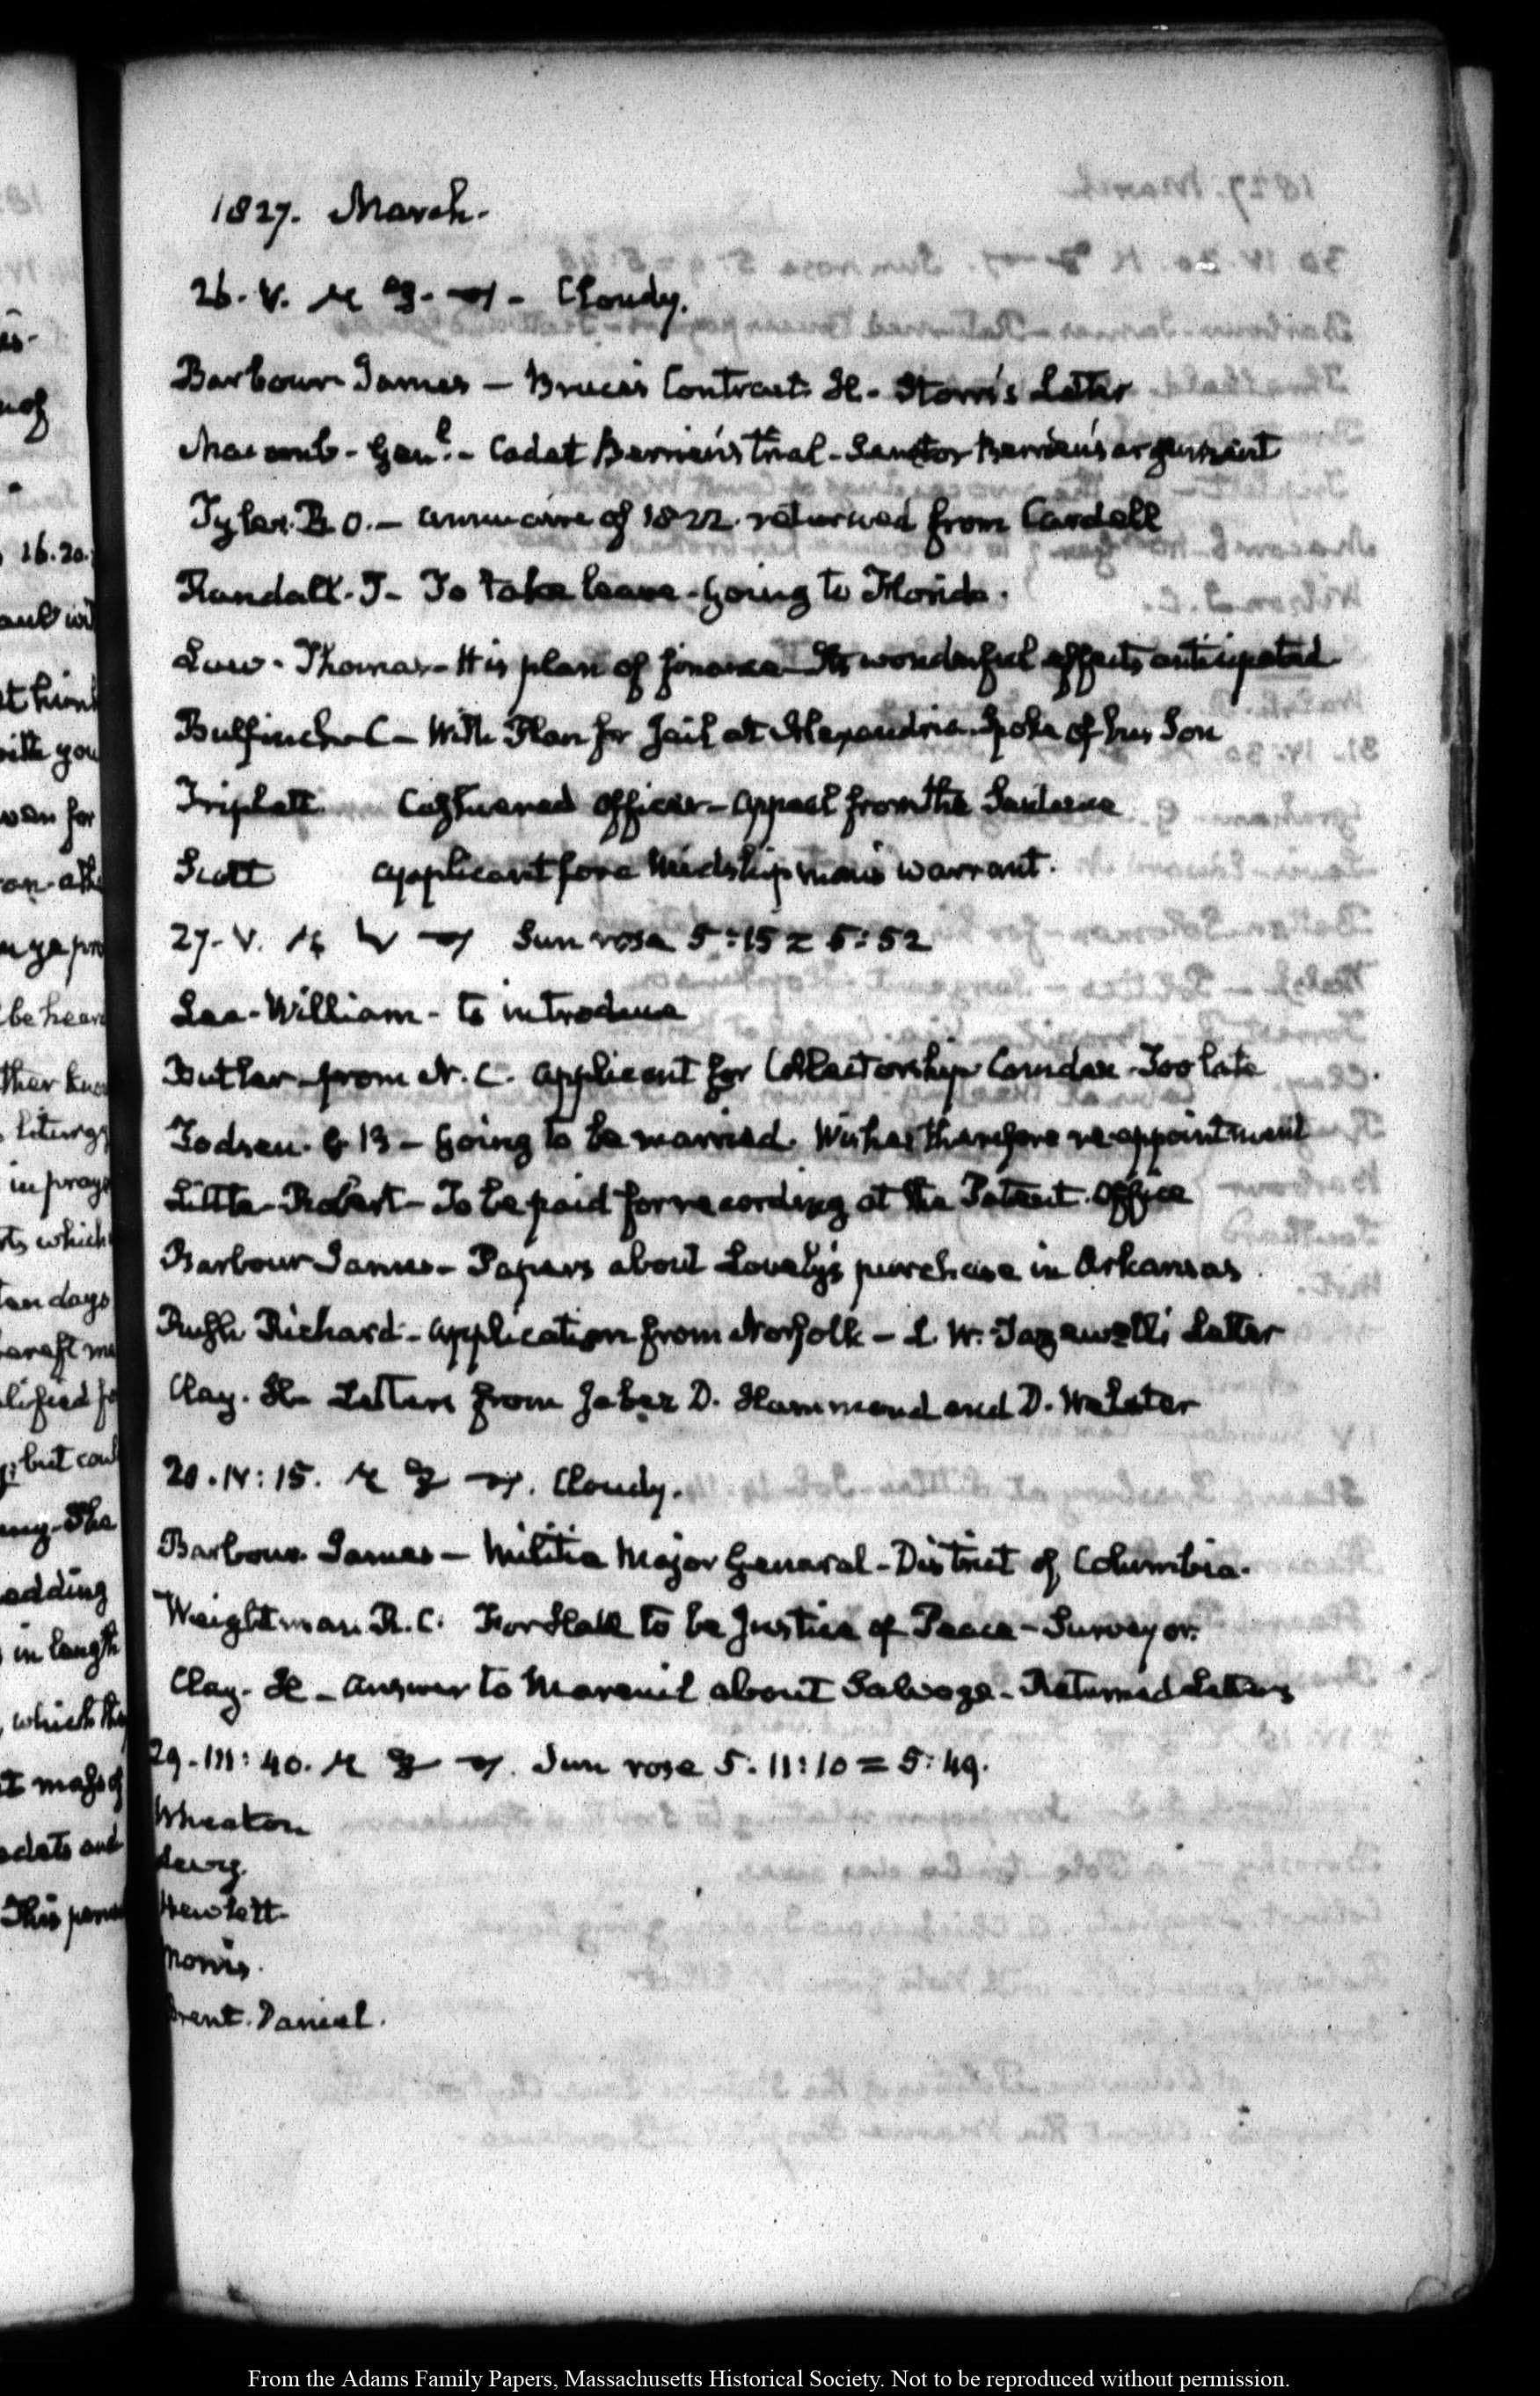 1827. March.
26. V. Cloudy.
Barbour James - Bruce's Contract. H. Storrs's Letter
Macomb - Genl. - Cadet Berrien's trial - Senator Berrien's argument
Tyler. B O. - Annuaire of 1822. returned from Cardell
Randall. T - To take leave - going to Florida.
Law - Thomas - His plan of finance - Its wonderful effects anticipated
Bulfinch - C - With Plan for Jail at Alexandria. Spoke of his Son
Triplett. Cashiered officer - Appeal from the Sentence
Scott applicant for a Midshipman's warrant.
27. V. Sun rose 5:15 = 5:52
Lee - William - to introduce
Butler - from N. C. applicant for Collectorship Camden - Too late
Todsen. G B - Going to be married. Wishes therefore re-appointment
Little - Robert - To be paid for recording at the Patent Office
Barbour James - Papers about Lovely's purchase in Arkansas
Rush Richard - Application from Norfolk - L. W. Tazewell's Letter
Clay. H. Letters from Jabez D. Hammond and D. Webster
28. IV: 15. Cloudy.
Barbour James - Militia Major General - District of Columbia.
Weightman R. C. to be Justice of Peace - Surveyor.
Clay. H - Answer to Mareuil about Salvage - Returned Letters
29. III: 40. Sun rose 5: 11: 10 = 5: 49.
Wheaton
Hewlett
Morris.
Brent. Daniel.
From the Adams Family Papers, Massachusetts Historical Society. Not to be reproduced without permission.